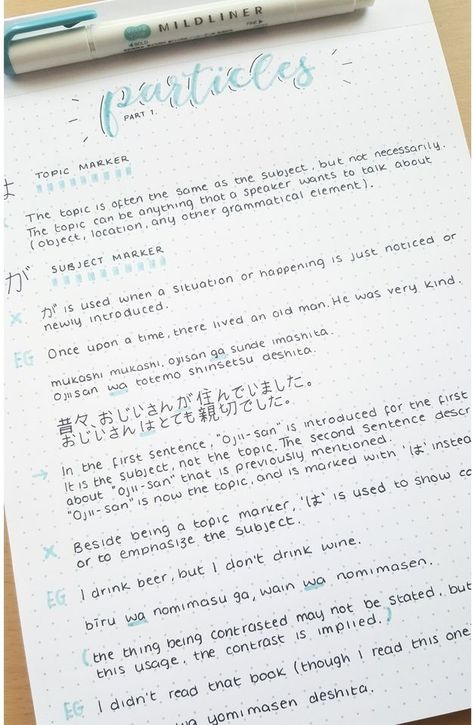 MILDLINER
particles
PART 1.
は TOPIC MARKER
The topic is often the same as the subject, but not necessarily.
The topic can be anything that a speaker wants to talk about
(object, location, any other grammatical element).
が SUBJECT MARKER
x. が is used when a situation or happening is just noticed or
newly introduced.
EG Once upon a time, there lived an old man. He was very kind.
mukashi mukashi, ojisan ga sunde imashita.
Ojisan wa totemo shinsetsu deshita.
昔々、おじいさんが住んでいました。
おじいさんはとても親切でした。
→ In the first sentence, "Ojii-san" is introduced for the first
It is the subject, not the topic. The second sentence descr
about "Ojii-san" that is previously mentioned.
"Ojii-san" is now the topic, and is marked with 'は' instea
x Beside being a topic marker, 'は' is used to show co
or to emphasize the subject.
EG I drink beer, but I don't drink wine.
bīru wa nomimasu ga, wain wa nomimasen.
(the thing being contrasted may not be stated, but
this usage, the contrast is implied.)
EG I didn't read that book (though I read this one
wa yomimasen deshita.